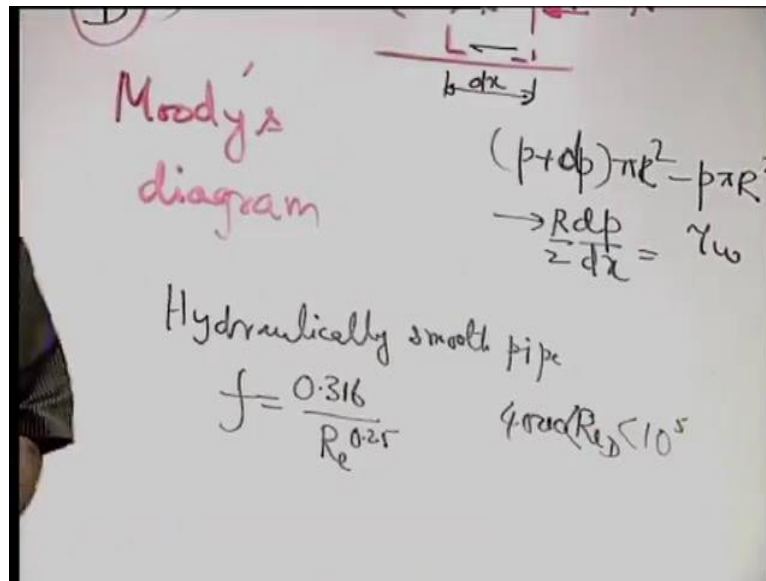 D
dx
Moody's
diagram
(p+dp)πR² - pπR²
→ R/2 dp/dx = τw
Hydraulically smooth pipe
f = 0.316/Re^0.25
4000<Re_D<10^5